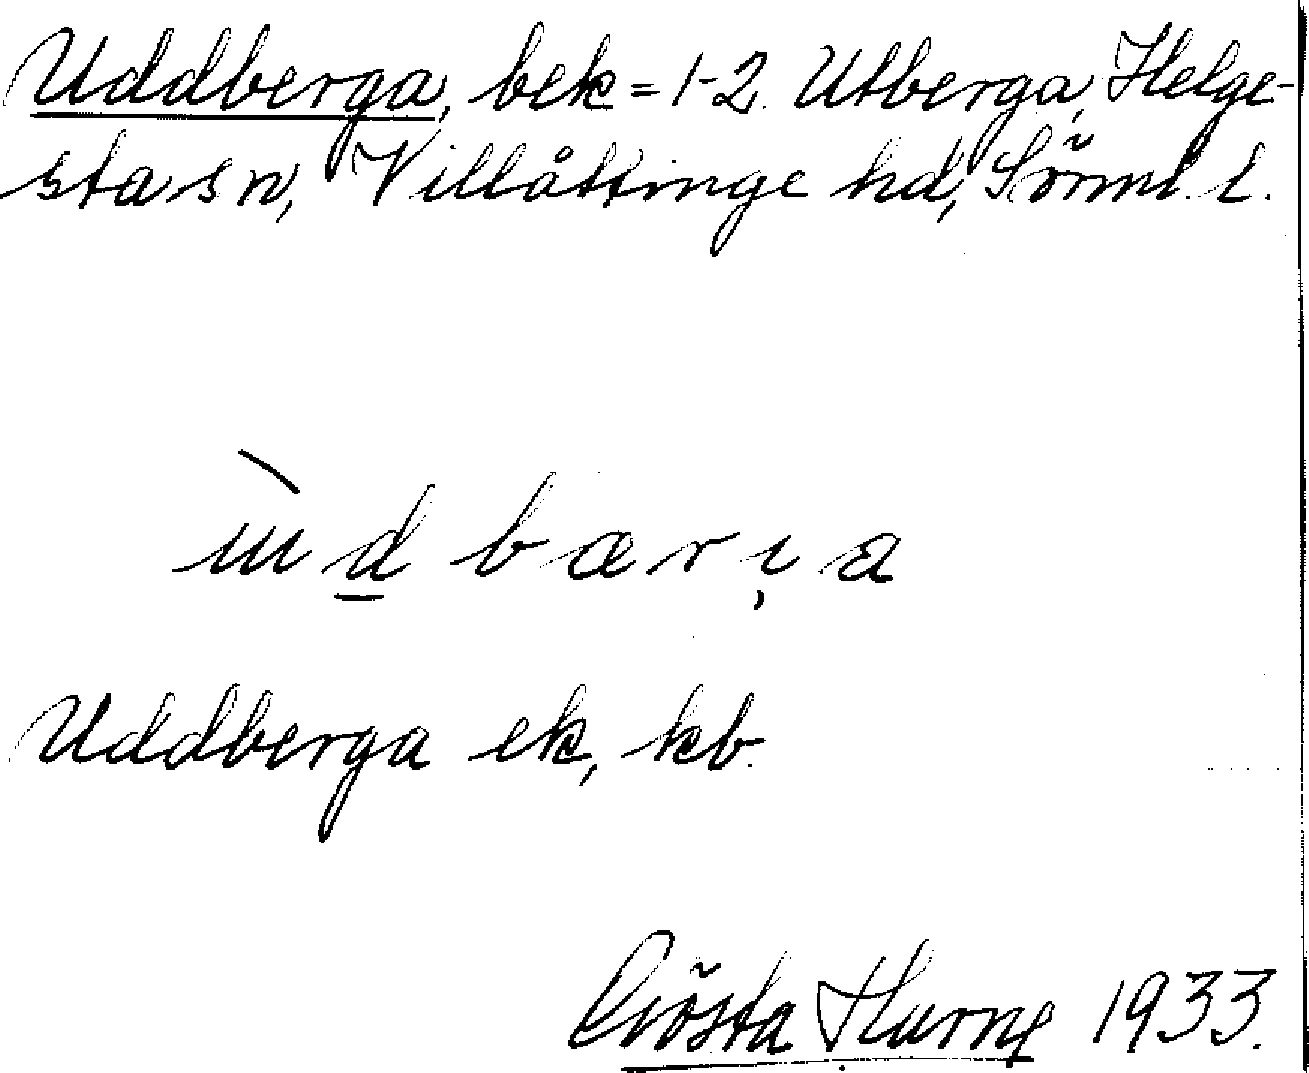 Uddberga, bek = 1-2 Utberga, Helge-
sta sn, Villåttinge hd, Sörml. l.
ùd bærıa
Uddberga ek, kb.
Gösta Hurne 1933.